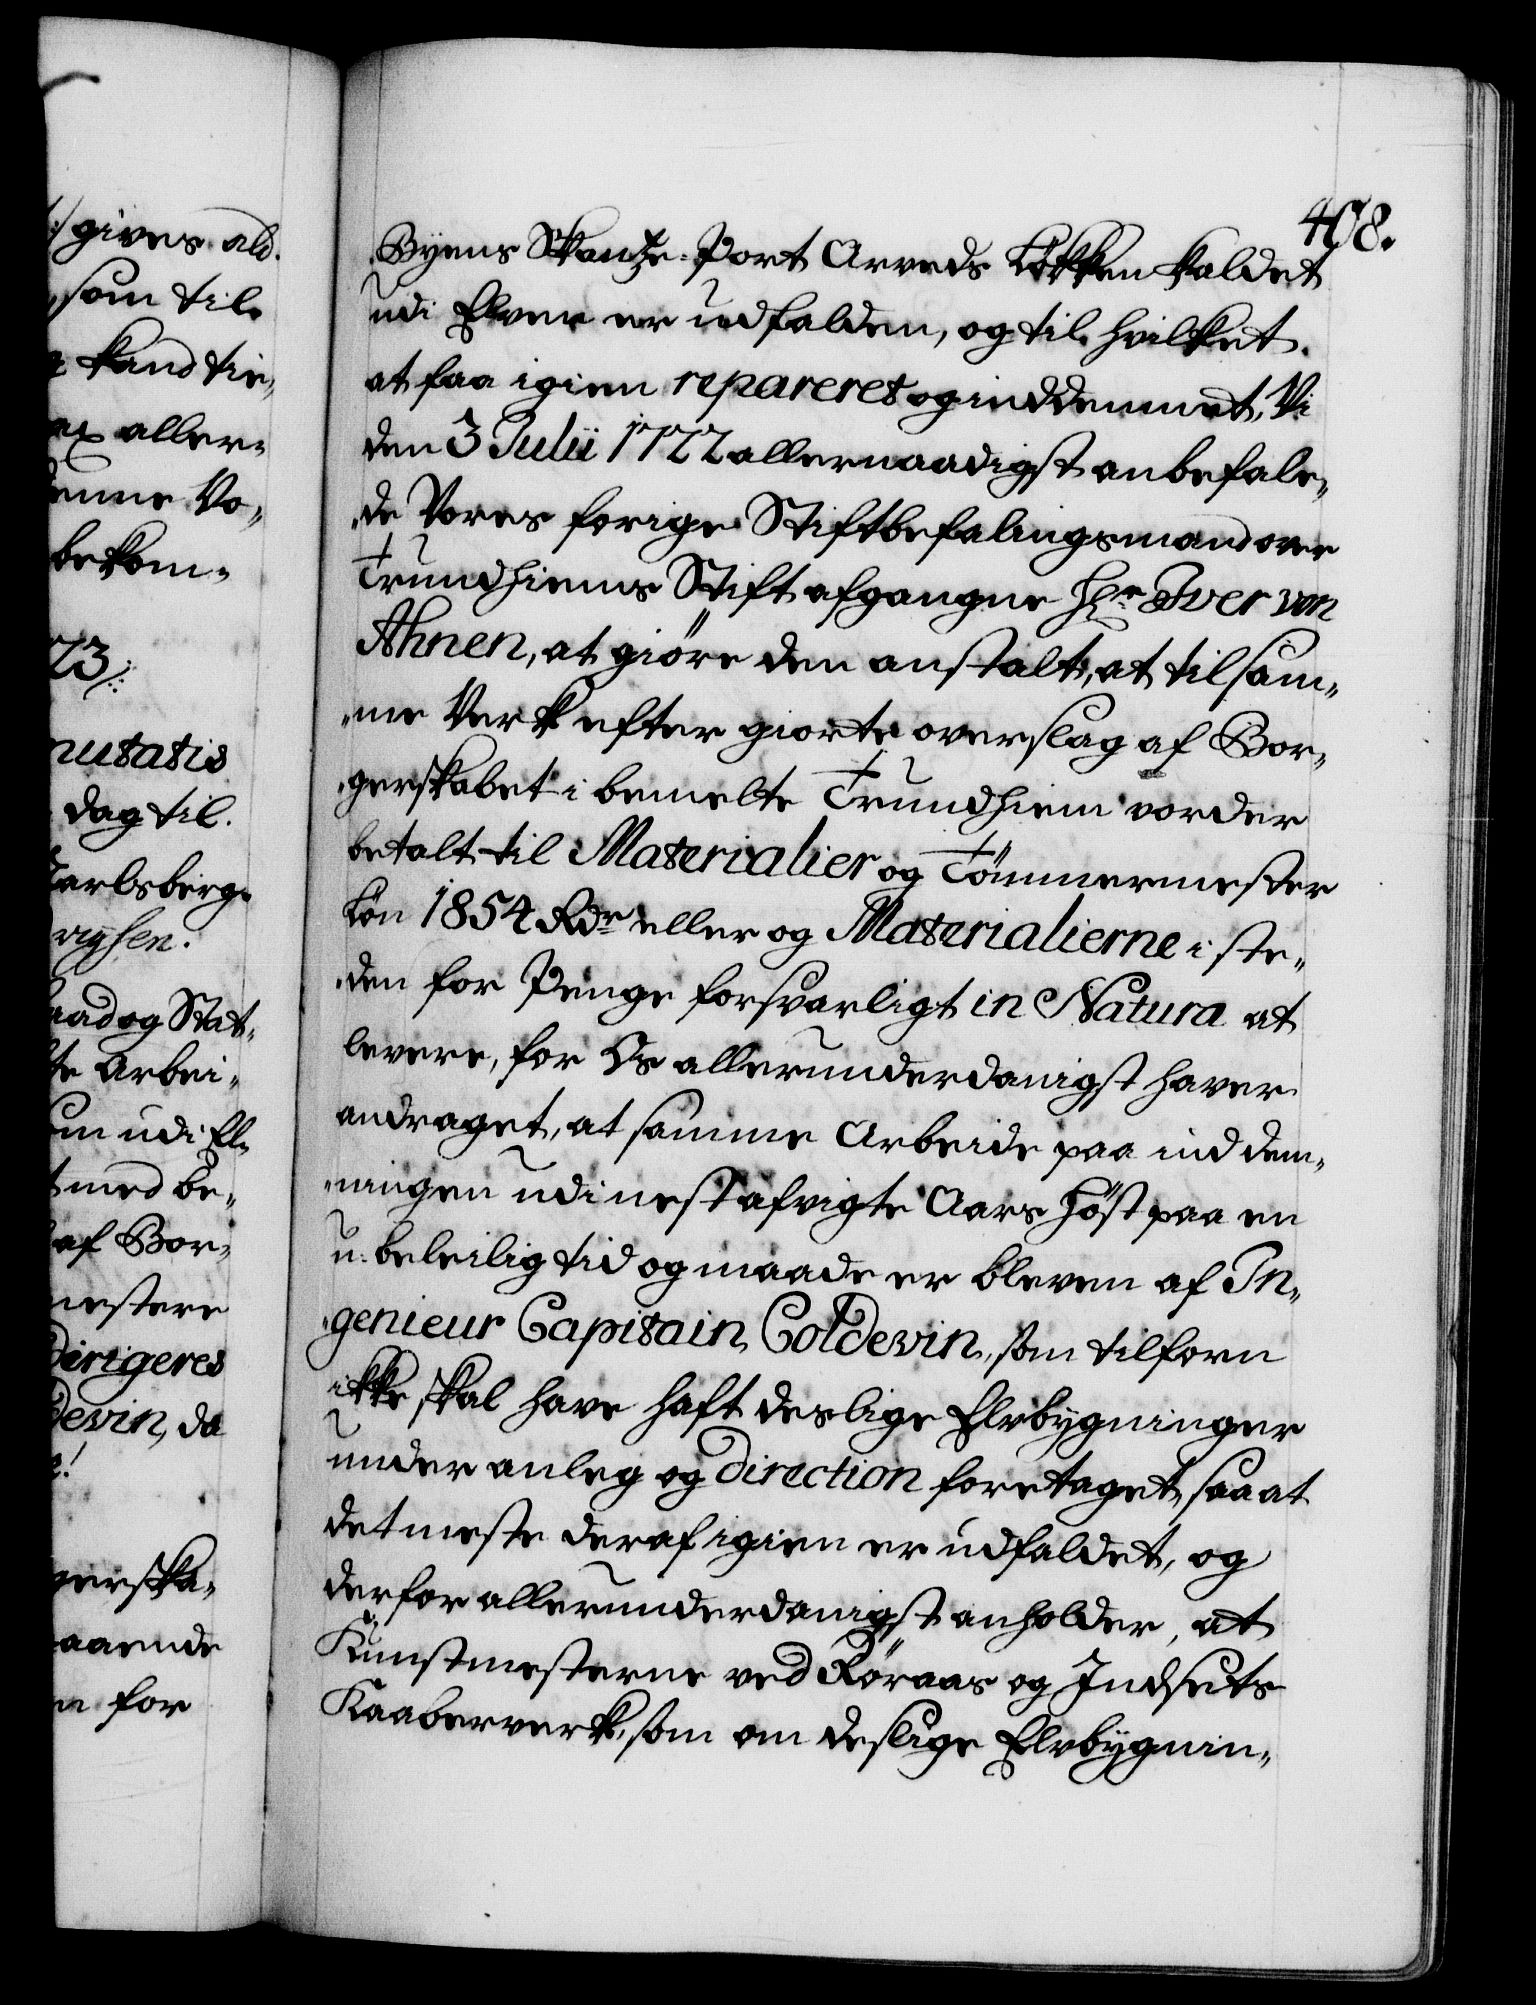 gives ald.
som til
kand tie„
ax aller„
denne Vo„
bekom„
73
mutatis
dag til.
Carlsberg
righsen.
aad og Stat„
te Arbei„
om udi El„
t med be„
af Bor„
mestere
dirigeres
devin, da
gerska„
aaende
n for
408.
Byens Skantze-Port Arveds Løkken kaldet
udi Elven er udfalden, og til hvilket
at faa igien repareret og inddemmet, Vi
den 3 Julii 1722 allernaadigst anbefale„
„de Vores forige Stiftbefalingsmand over
Trundhiems Stift afgangne Hr. Iver von
Ahnen, at giöre den anstalt, at til sam„
„me Verk efter giorte overslag af Bor„
„gerskabet i bemelte Trundhiem vorder
betalt til Materialier og Tömmermester
Lön 1854 Rdr eller og Materialierne i ste„
„den for Penge forsvarligt in Natura at
levere, for Os allerunderdanigst haver
andraget, at samme Arbeide paa ind dem„
„ningen udi nest afvigte Aars Höst paa en
u-beleilig tid og maade er bleven af In„
„genieur Capitain Coldevin, som tilforn
ikke skal have haft deslige Elvbygninger
under anleg og direction foretaget, saa at
det meste deraf igien er udfaldet, og
derfor allerunderdanigst anholder, at
Kunstmesterne ved Röraas og Indsets
Kaaberverk, som om deslige Elvbygnin„